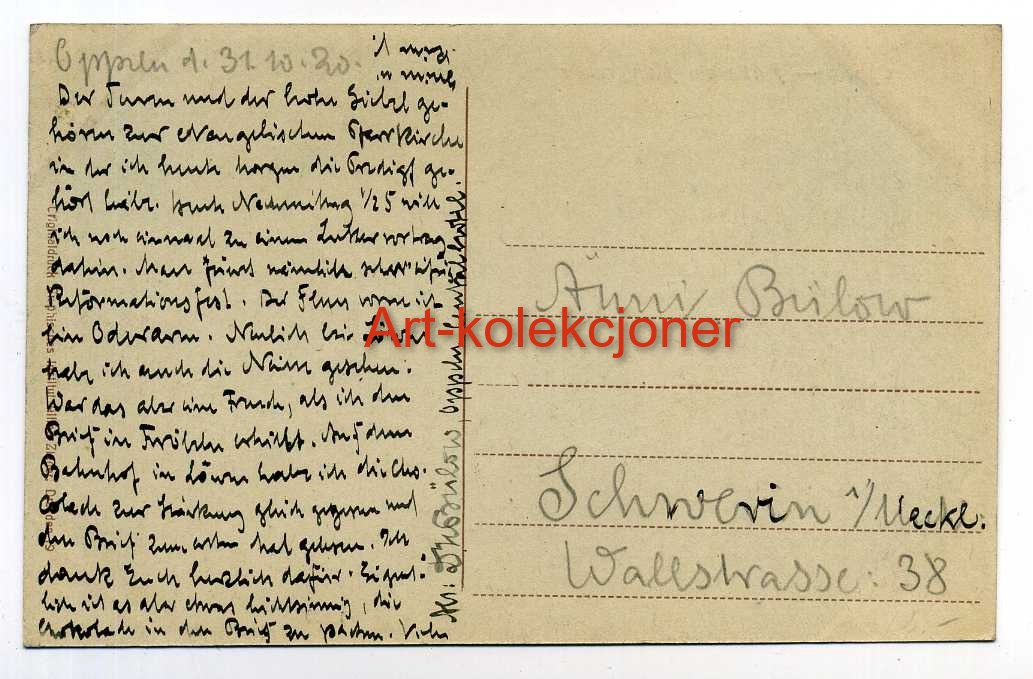 Oppeln d. 31.10.20.
Der Turm und der hohe Giebel ge-
hören zur evangelischen Pfarrkirche
in der ich heute morgen die Predigt ge-
hört habe. Heute Nachmittag 1/25 will
ich noch einmal zu einem Luthervortrag
dahin. Man feiert nämlich
Reformationsfest. Der Fluss vorn ist
ein Oderarm. Neulich bei Löwen
habe ich auch die Neisse gesehen.
War das aber eine Freude, als ich den
Brief in erhielt. Auf dem
Bahnhof in Löwen habe ich die Cho-
colade zur Stärkung gleich gegessen und
den Brief zum ersten Mal gelesen. Ich
danke Euch herzlich dafür. Eigent-
lich ist es aber etwas leichtsinnig, die
Schokolade in den Brief zu packen. Viele
Abs: Bülow, Oppeln
Änni Bülow
Schwerin i/Meckl.
Wallstrasse: 38
Art-kolekcjoner